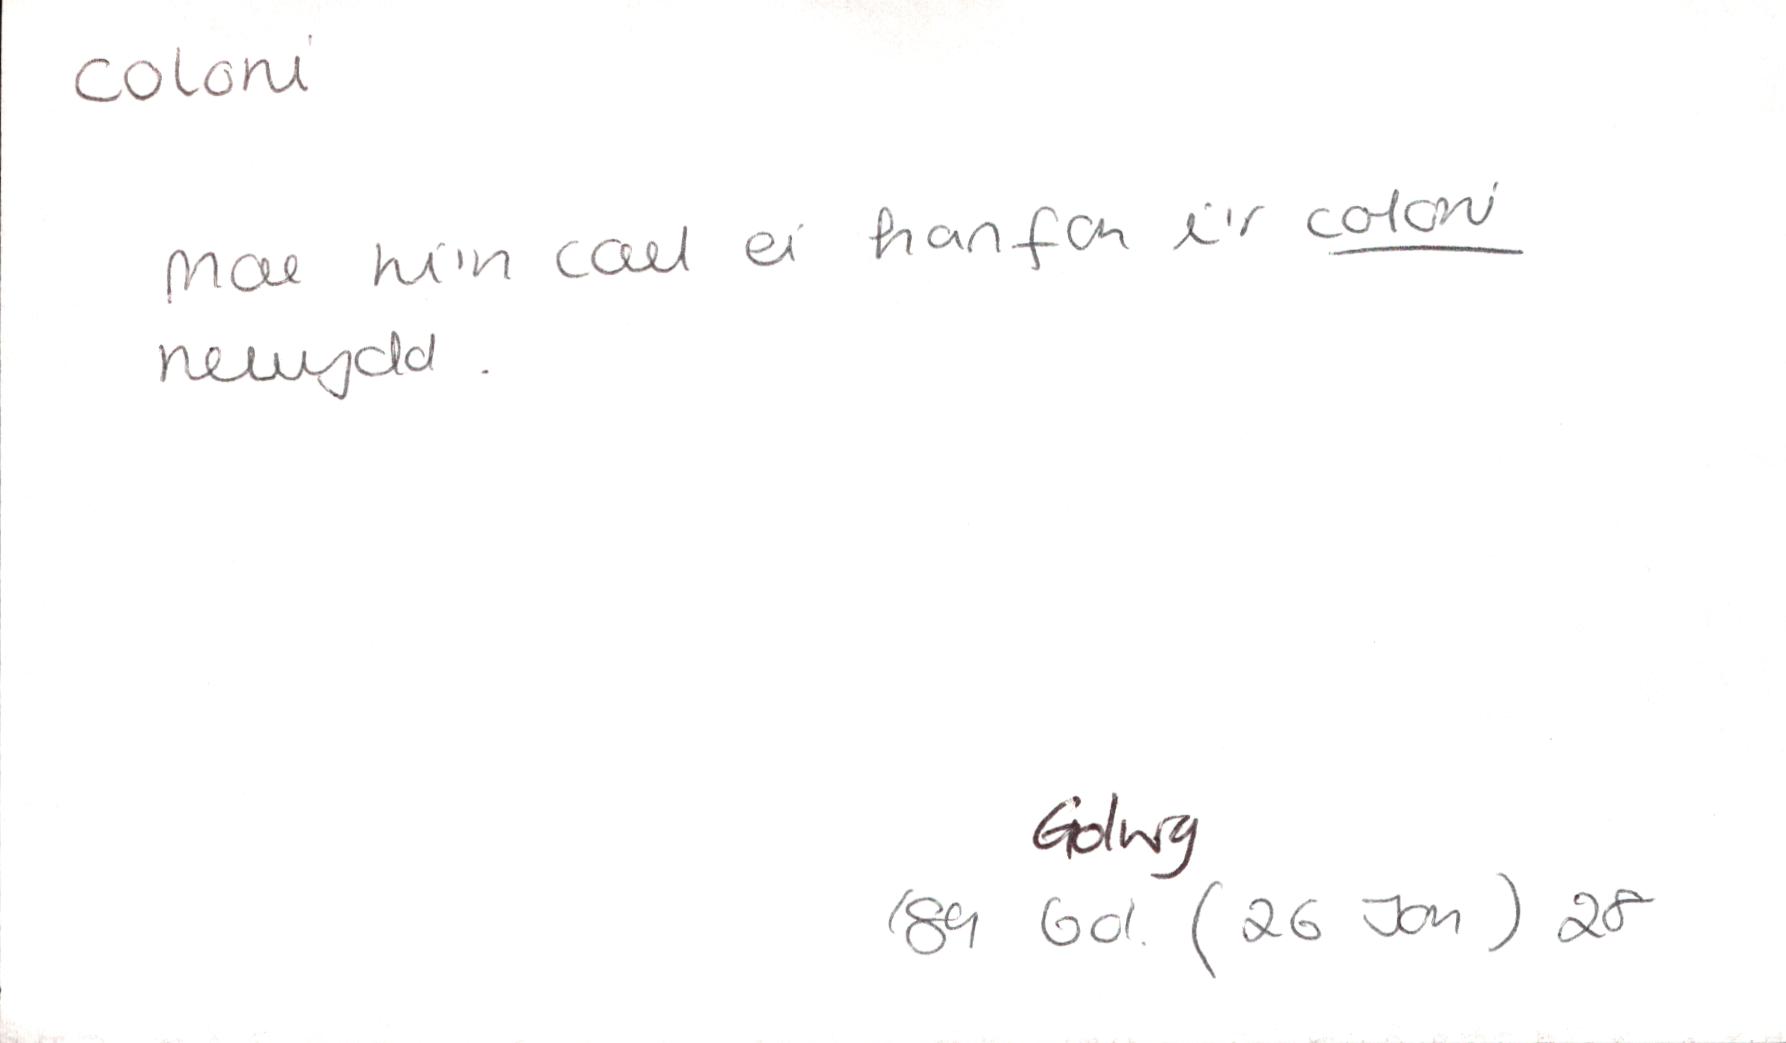 coloni
Mae hi'n cael ei hanfon i'r coloni
newydd.
Golwg
'89 Gol. (26 Jan) 28